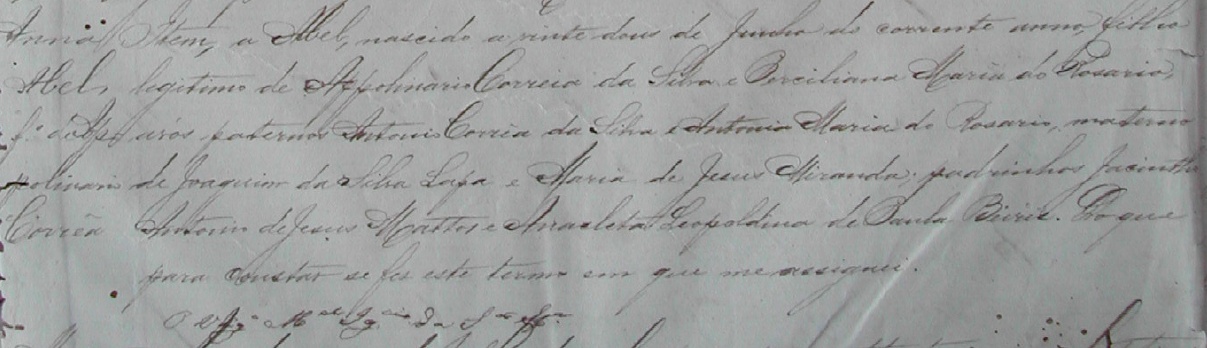 Anna Item, a Abel, nascido a vinte dous de Junho do corrente anno, filho
Abel, legitimo de Appolinario Correia da Silva e Porciliana Maria do Rosario,
fº do Ap avós paternos Antonio Corrêa da Silva e Antonia Maria do Rosario, materno
polinario de Joaquim da Silva Lapa e Maria de Jesus Miranda; padrinhos Jacintho
Corrêa Antonio de Jesus Mattos e Anacleta Leopoldina de Paula. Do que
para constar se fes este termo em que me assignei.
O Vigº